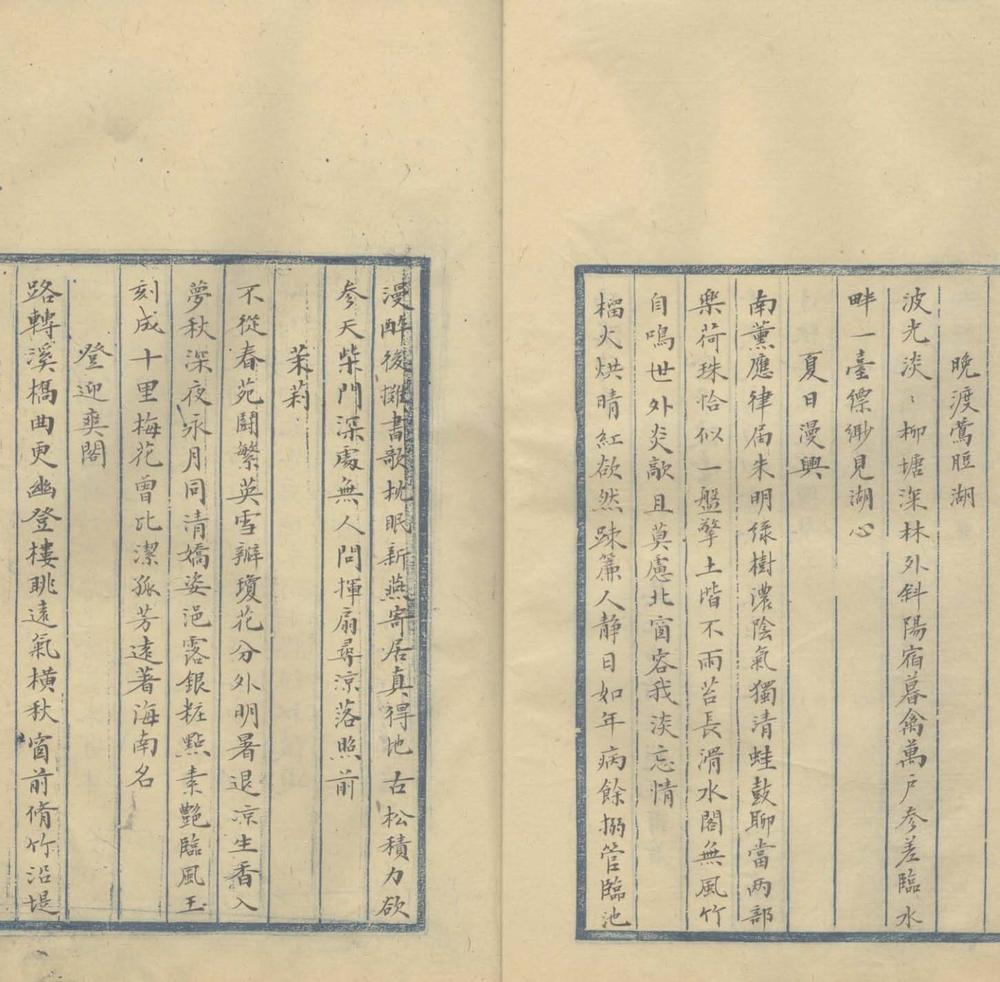 晚渡鶯脰湖
波光淡〻柳塘深林外斜陽宿暮禽萬戶參差臨水
畔一臺縹緲見湖心
夏日漫興
南薰應律屆朱明綠樹濃陰氣獨清蛙鼓聊當兩部
樂荷珠恰似一盤擎土堦不雨苔長滑水閣無風竹
自鳴世外炎歊且莫慮北窗容我淡忘情
榴火烘晴紅欲然疎簾人靜日如年病餘搦管臨池
漫醉後攤書歌枕眠新燕寄居真得地古松積力欲
參天柴門深處無人問揮扇尋凉落照前
茉莉
不從春苑鬪繁英雪瓣瓊花分外明暑退凉生香入
夢秋深夜永月同清嬌姿浥露銀粧點素艷臨風玉
刻成十里梅花曾比潔孤芳遠著海南名
登迎爽閣
路轉溪橋曲更幽登樓眺遠氣橫秋窗前脩竹沿堤